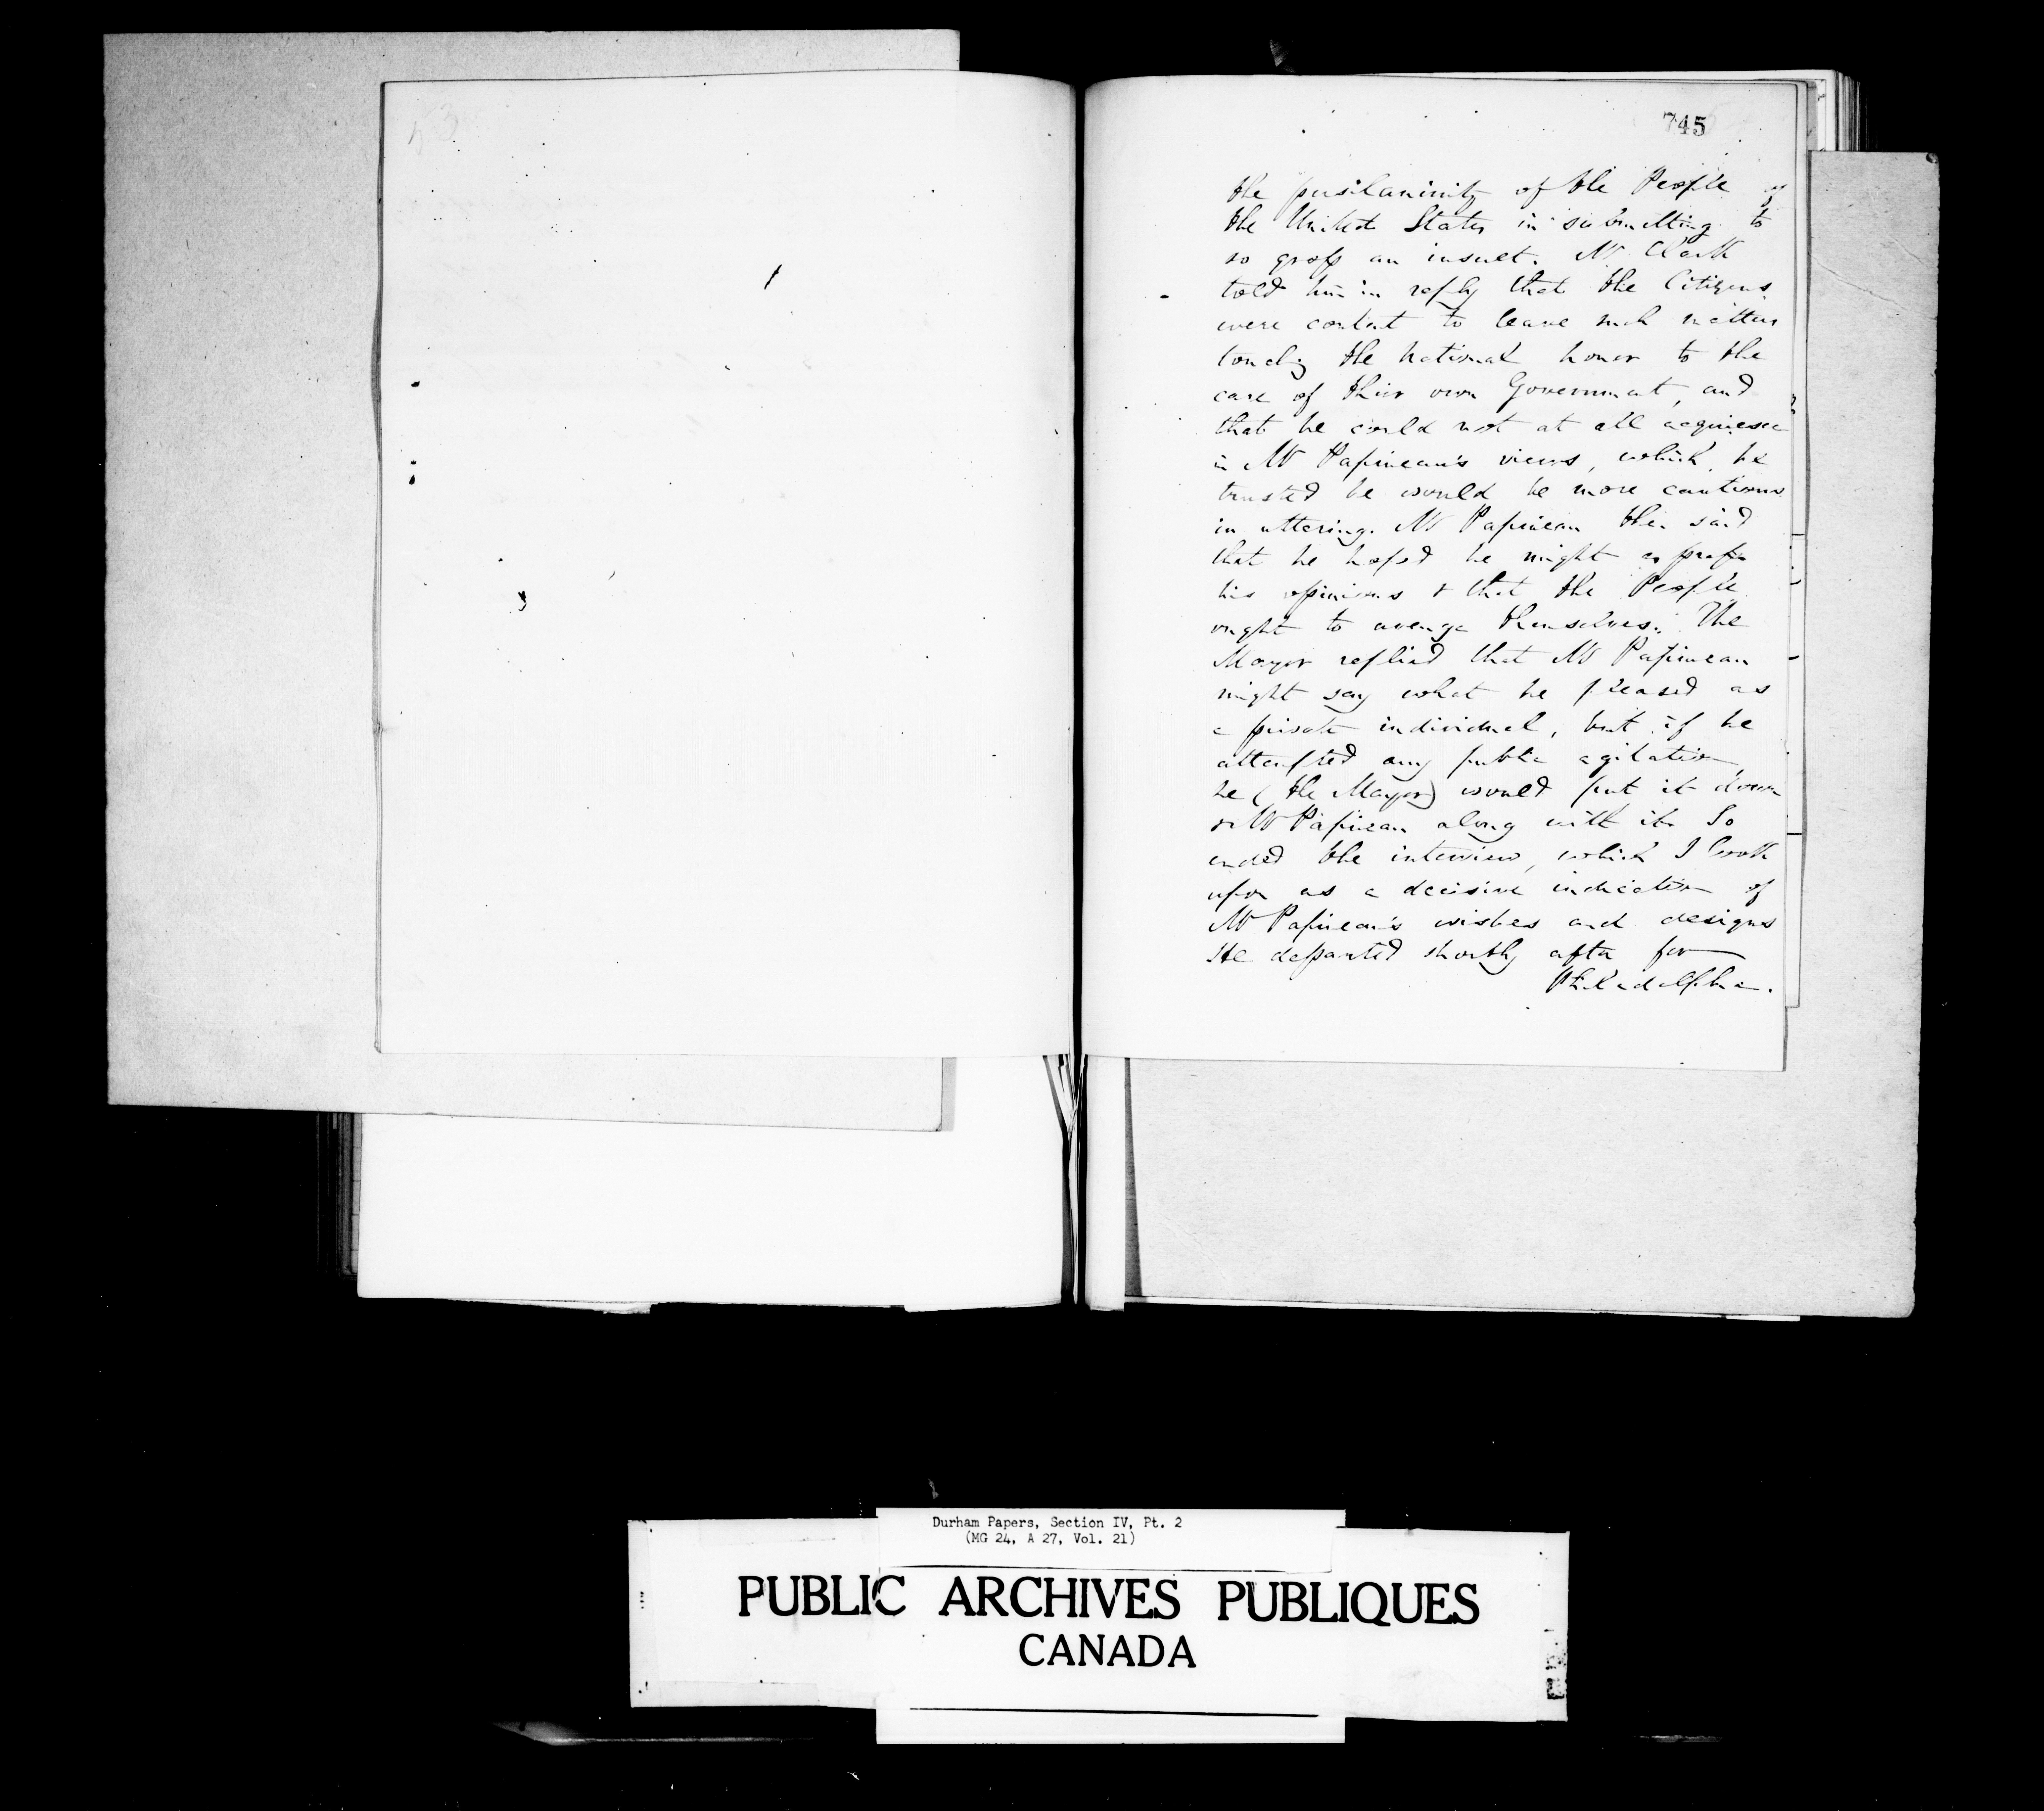 745
the pusilanimity of the People of
the United States in submitting to
so gross an insult. Mr Clark
told him in reply that the Citizens
were content to leave such matters
touchg the national honor to the
care of thier own Government, and
that he could not at all acquiesce
in Mr Papineau's views, which, he
trusted he would be more cautious
in uttering. Mr Papineau then said
that he hoped he might express
his opinions & that the People
ought to avenge themselves. The
Mayor replied that Mr Papineau
might say what he pleased as
a private individual, but if he
attempted any public agitation,
he (the Mayor) would put it down
& Mr Papineau along with it. So
ended the interview, which I look
upon as a decisive indication of
Mr Papineau's wishes and designs
He departed shortly after for
Philadelphia.
Durham Papers, Section IV, Pt. 2
(MG 24, A 27, Vol. 21)
PUBLIC ARCHIVES PUBLIQUES
CANADA